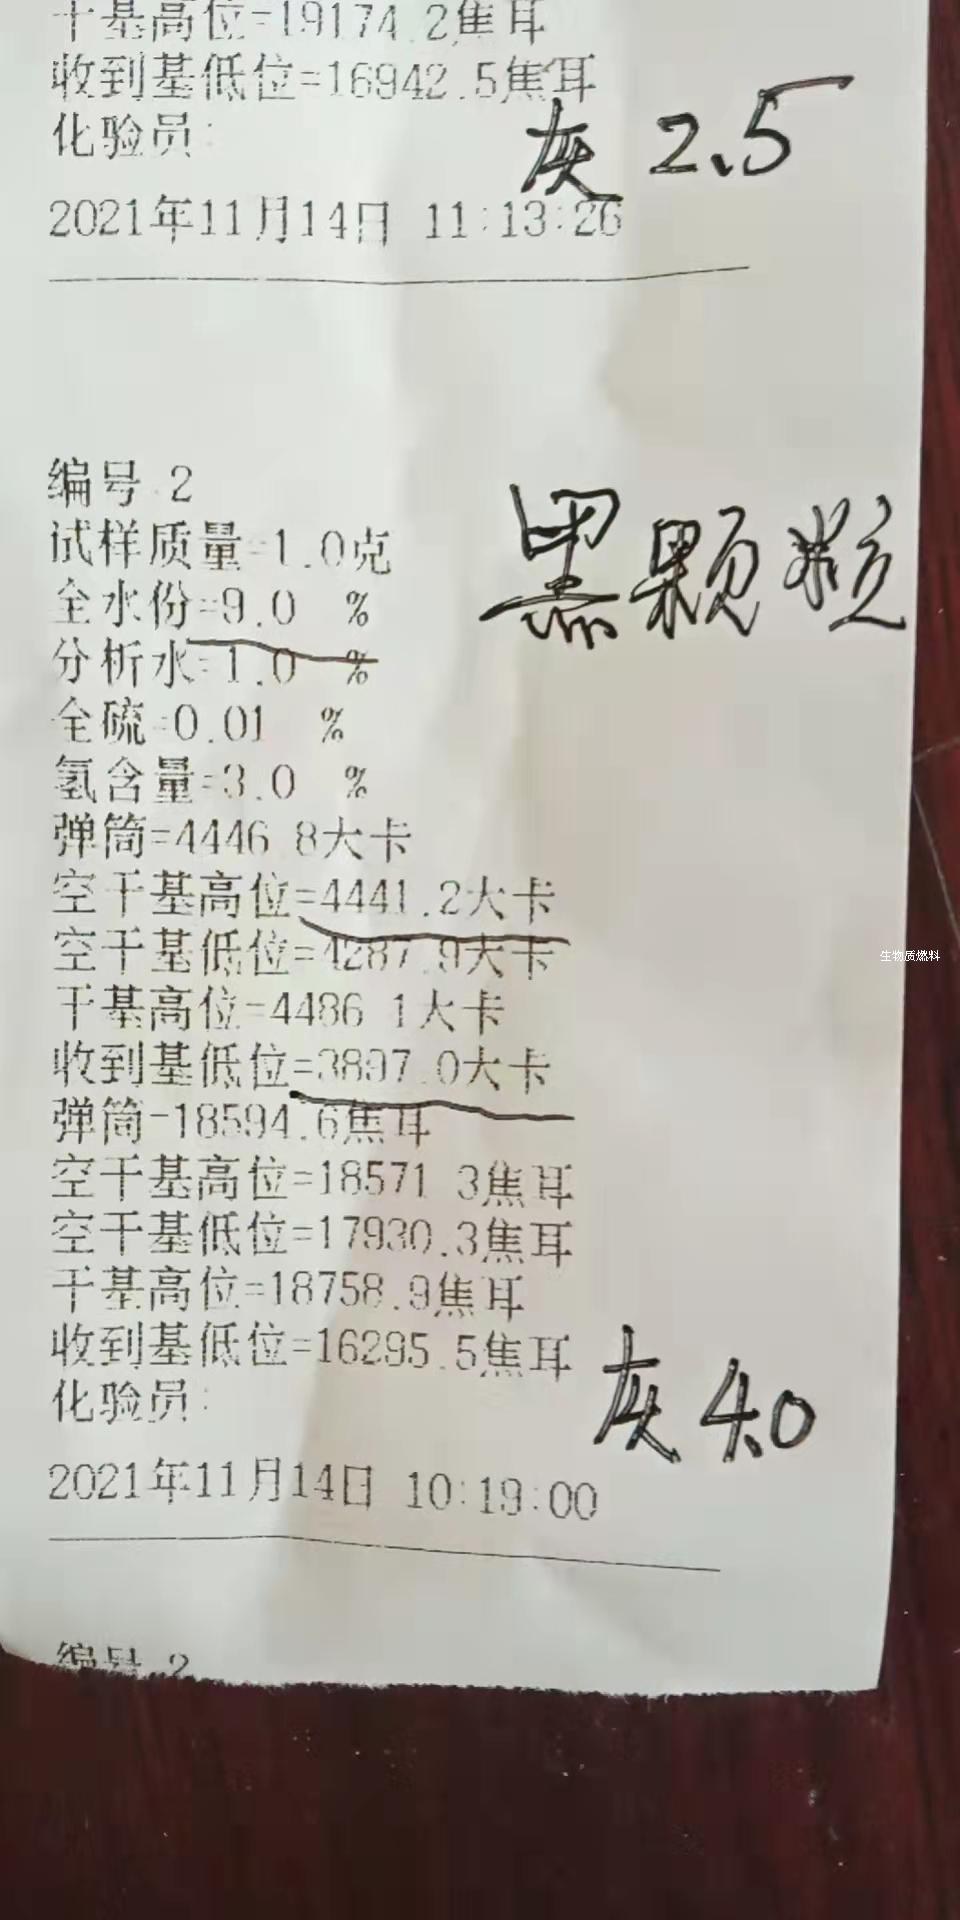 干基高位=19174.2焦耳
收到基低位=16942.5焦耳
化验员:
灰 2.5
2021年11月14日 11:13:26
编号 2
黑颗粒
试样质量=1.0克
全水份=9.0 %
分析水=1.0 %
全硫=0.01 %
氢含量=3.0 %
弹筒=4446.8大卡
空干基高位=4441.2大卡
空干基低位=4287.9大卡
生物质燃料
干基高位=4486.1大卡
收到基低位=3897.0大卡
弹筒=18594.6焦耳
空干基高位=18571.3焦耳
空干基低位=17930.3焦耳
干基高位=18758.9焦耳
收到基低位=16295.5焦耳
灰 4.0
化验员:
2021年11月14日 10:19:00
编号 2